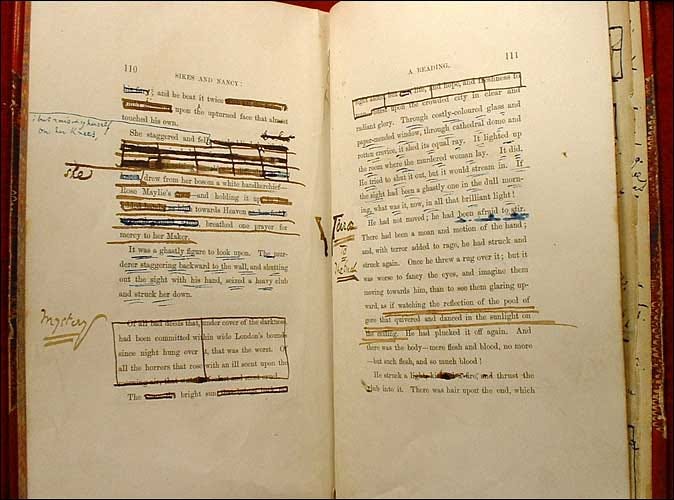 110
SIKES AND NANCY:
and he beat it twice
upon the upturned face that almost
touched his own.
She staggered and fell
she
drew from her bosom a white handkerchief—
Rose Maylie's and holding it up
towards Heaven
breathed one prayer for
mercy to her Maker.
It was a ghastly figure to look upon. The mur-
derer staggering backward to the wall, and shutting
out the sight with his hand, seized a heavy club
and struck her down.
Mystery
Of all bad deeds that, under cover of the darkness,
had been committed within wide London's bounds
since night hung over it, that was the worst. Of
all the horrors that rose with an ill scent upon the
The bright sun
111
A READING.
life, and hope, and freshness to
burst upon the crowded city in clear and
radiant glory. Through costly-coloured glass and
paper-mended window, through cathedral dome and
rotten crevice, it shed its equal ray. It lighted up
the room where the murdered woman lay. It did.
He tried to shut it out, but it would stream in. If
the sight had been a ghastly one in the dull morn-
ing, what was it, now, in all that brilliant light!
He had not moved; he had been afraid to stir.
There had been a moan and motion of the hand;
and, with terror added to rage, he had struck and
struck again. Once he threw a rug over it; but it
was worse to fancy the eyes, and imagine them
moving towards him, than to see them glaring up-
ward, as if watching the reflection of the pool of
gore that quivered and danced in the sunlight on
the ceiling. He had plucked it off again. And
there was the body—mere flesh and blood, no more
—but such flesh, and so much blood!
He struck a fire, and thrust the
club into it. There was hair upon the end, which
Terror
to
the End